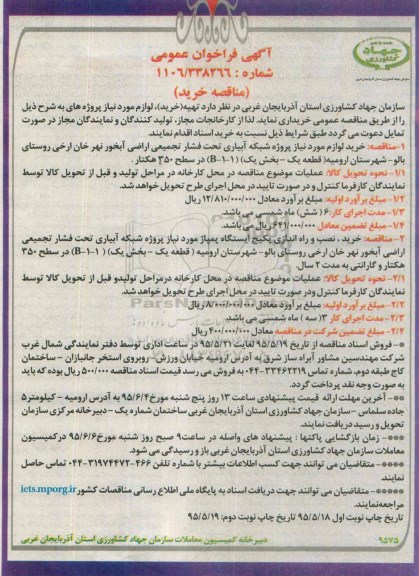 جهاد
کشاورزی
آگهی فراخوان عمومی
شماره : ۱۱۰۶/۳۳۸۲۶۶
(مناقصه خرید)
سازمان جهاد کشاورزی استان آذربایجان غربی در نظر دارد تهیه(خرید)، لوازم مورد نیاز پروژه های به شرح ذیل
را از طریق مناقصه عمومی خریداری نماید. لذا از کارخانجات مجاز، تولید کنندگان و نمایندگان مجاز در صورت
تمایل دعوت می گردد طبق شرایط ذیل نسبت به خرید اسناد اقدام نمایند.
۱-مناقصه: خرید لوازم مورد نیاز پروژه شبکه آبیاری تحت فشار تجمیعی اراضی آبخور نهر خان ارخی روستای
بالو-شهرستان ارومیه( قطعه یک - بخش یک) (B-۱-۱) در سطح ۳۵۰ هکتار.
۱/۱- نحوه تحویل کالا: عملیات موضوع مناقصه در محل کارخانه در مراحل تولید و قبل از تحویل کالا توسط
نمایندگان کارفرما کنترل و در صورت تایید در محل اجرای طرح تحویل خواهد شد.
۱/۲- مبلغ برآورد اولیه: مبلغ برآورد معادل ۱۲/۸۱۰/۰۰۰/۰۰۰ ریال
۱/۳- مدت اجرای کار: ۶ ( شش) ماه شمسی می باشد.
۱/۴- مبلغ تضمین معادل ۶۴۱/۰۰۰/۰۰۰ ریال می باشد.
۲- مناقصه: خرید ، نصب و راه اندازی پکیج ایستگاه پمپاژ مورد نیاز پروژه شبکه آبیاری تحت فشار تجمیعی
اراضی آبخور نهر خان ارخی روستای بالو- شهرستان ارومیه ( قطعه یک - بخش یک) (B-۱-۱) در سطح ۳۵۰
هکتار و گارانتی به مدت ۲ سال.
۲/۱- نحوه تحویل کالا: عملیات موضوع مناقصه در محل کارخانه درمراحل تولیدو قبل از تحویل کالا توسط
نمایندگان کارفرما کنترل ودر صورت تایید در محل اجرای طرح تحویل خواهدشد.
۲/۲- مبلغ برآورد اولیه: مبلغ برآورد معادل ۸/۰۰۰/۰۰۰/۰۰۰ ریال
۲/۳- مدت اجرای کار: ۳( سه ) ماه شمسی می باشد.
۲/۴- مبلغ تضمین شرکت در مناقصه معادل ۴۰۰/۰۰۰/۰۰۰ ریال
*- فروش اسناد مناقصه از تاریخ ۹۵/۵/۱۹ لغایت ۹۵/۵/۲۱ در ساعت اداری توسط دفتر نمایندگی شمال غرب
شرکت مهندسین مشاور آبراه ساز شرق به آدرس ارومیه خیابان ورزش - روبروی استخر جانبازان - ساختمان
کاج طبقه دوم، شماره تماس ۳۳۴۶۲۲۱۹-۰۴۴ به فروش می رسد قیمت اسناد مناقصه ۵۰۰/۰۰۰ ریال بوده که باید
به صورت وجه نقد پرداخت گردد.
**- آخرین مهلت ارائه قیمت پیشنهادی ساعت ۱۳ روز پنج شنبه مورخ ۹۵/۶/۴ به آدرس ارومیه - کیلومتر ۵
جاده سلماس -سازمان جهاد کشاورزی استان آذربایجان غربی ساختمان شماره یک - دبیرخانه مرکزی سازمان
تحویل و رسید دریافت نمایند.
***- زمان بازگشایی پاکتها : پیشنهاد های واصله در ساعت۹ صبح روز شنبه مورخ ۹۵/۶/۶ در کمیسیون
معاملات سازمان جهاد کشاورزی استان آذربایجان غربی باز و رسیدگی می شود.
****- متقاضیان می توانند جهت کسب اطلاعات بیشتر با شماره تلفن ۴۶۶-۳۱۹۷۴۴۷۲-۰۴۴ تماس حاصل
نمایند.
*****- متقاضیان می توانند جهت دریافت اسناد به پایگاه ملی اطلاع رسانی مناقصات کشور iets.mporg.ir
مراجعه نمایند.
تاریخ چاپ نوبت اول ۹۵/۵/۱۸ تاریخ چاپ نوبت دوم: ۹۵/۵/۱۹
۹۵۷۵ دبیرخانه کمیسیون معاملات سازمان جهاد کشاورزی استان آذربایجان غربی